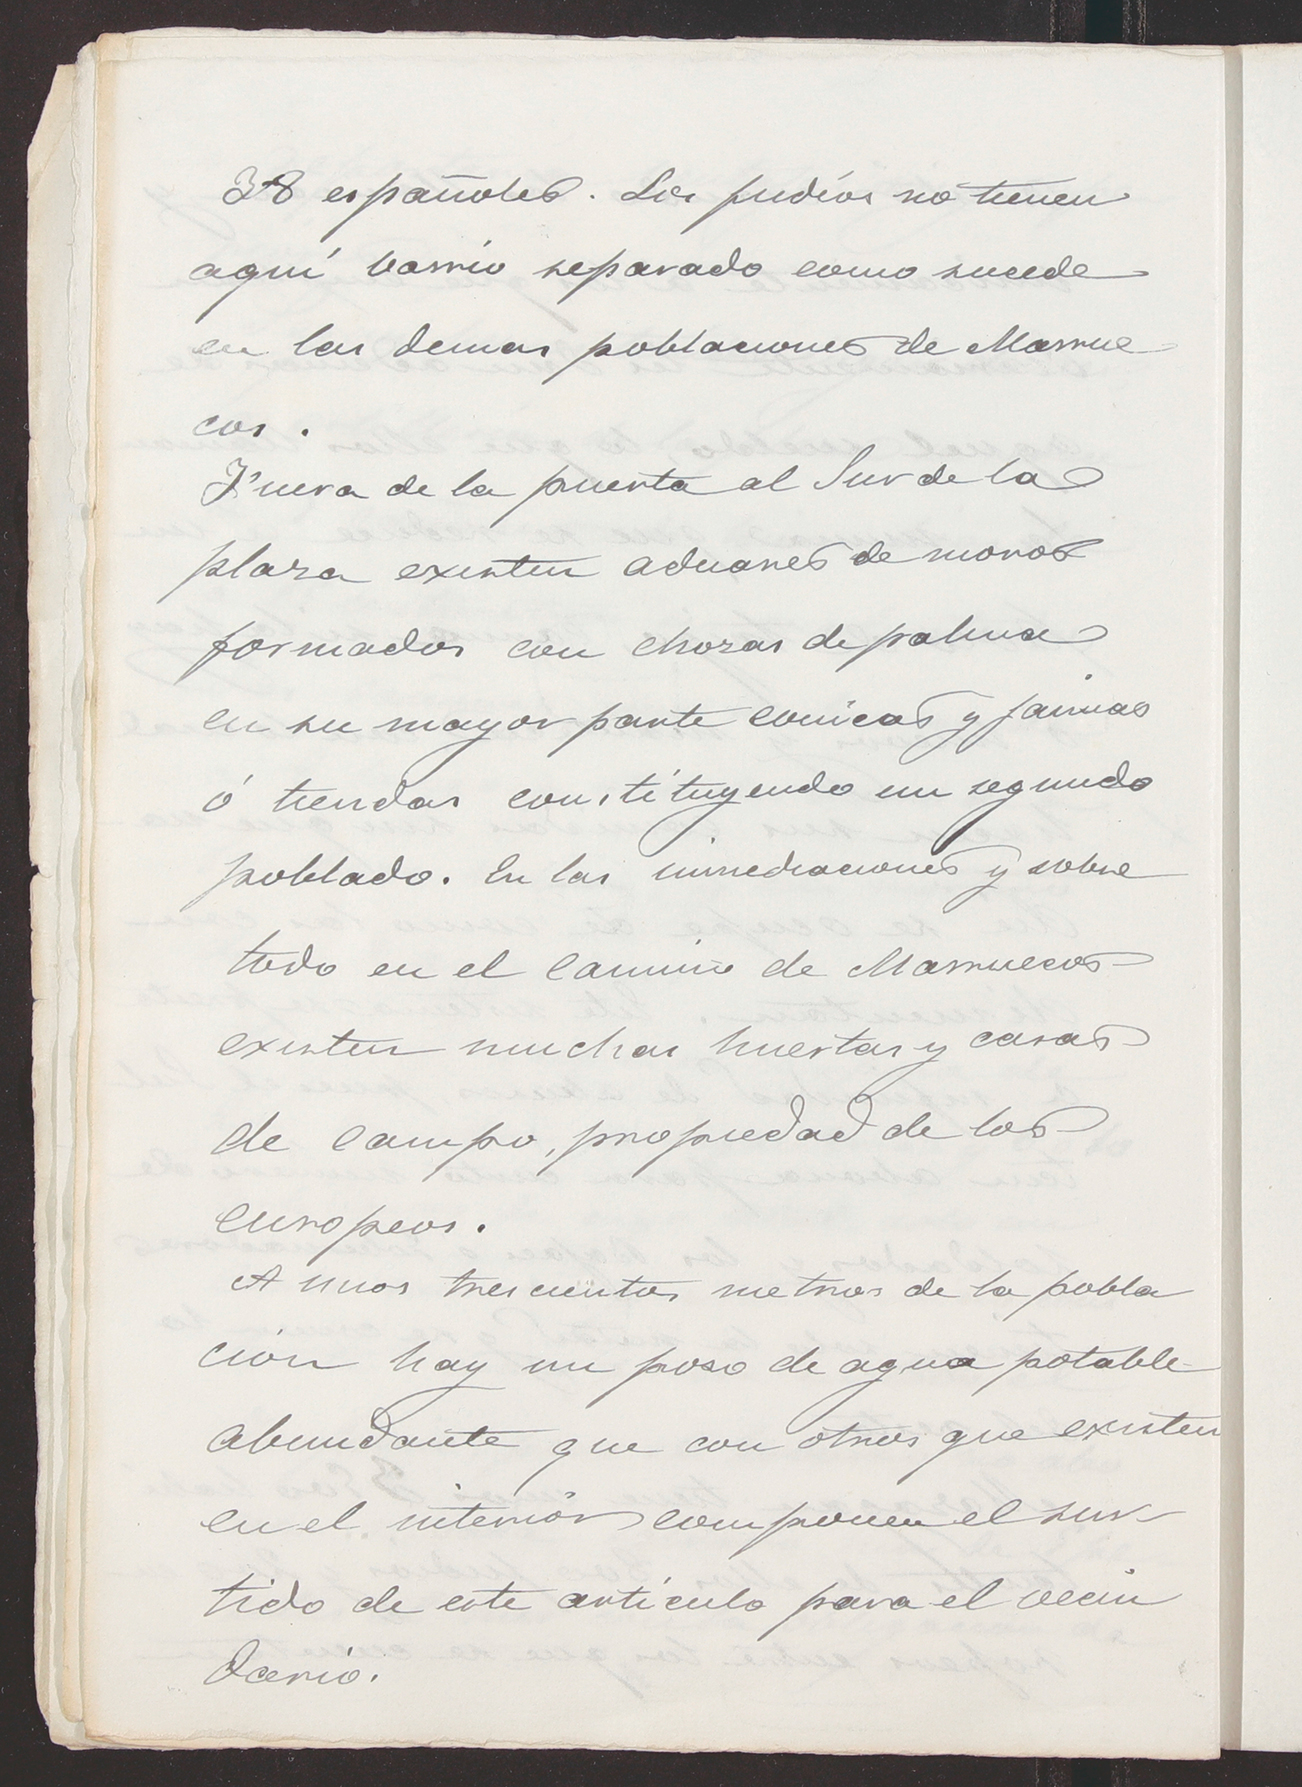 38 españoles. Los judíos no tienen
aquí barrio separado como sucede
en las demas poblaciones de Marrue
cos.
Fuera de la puerta al Sur de la
plaza existen aduares de moros
formados con chozas de palma
en su mayor parte conicas y jaimas
ó tiendas constituyendo un segundo
poblado. En las inmediaciones y sobre
todo en el camino de Marruecos
existen muchas huertas y casas
de campo, propiedad de los
europeos.
A unos trescientos metros de la pobla
ción hay un poso de agua potable
abundante que con otros que existen
en el interior componen el sur-
tido de este artículo para el vecin
dario.